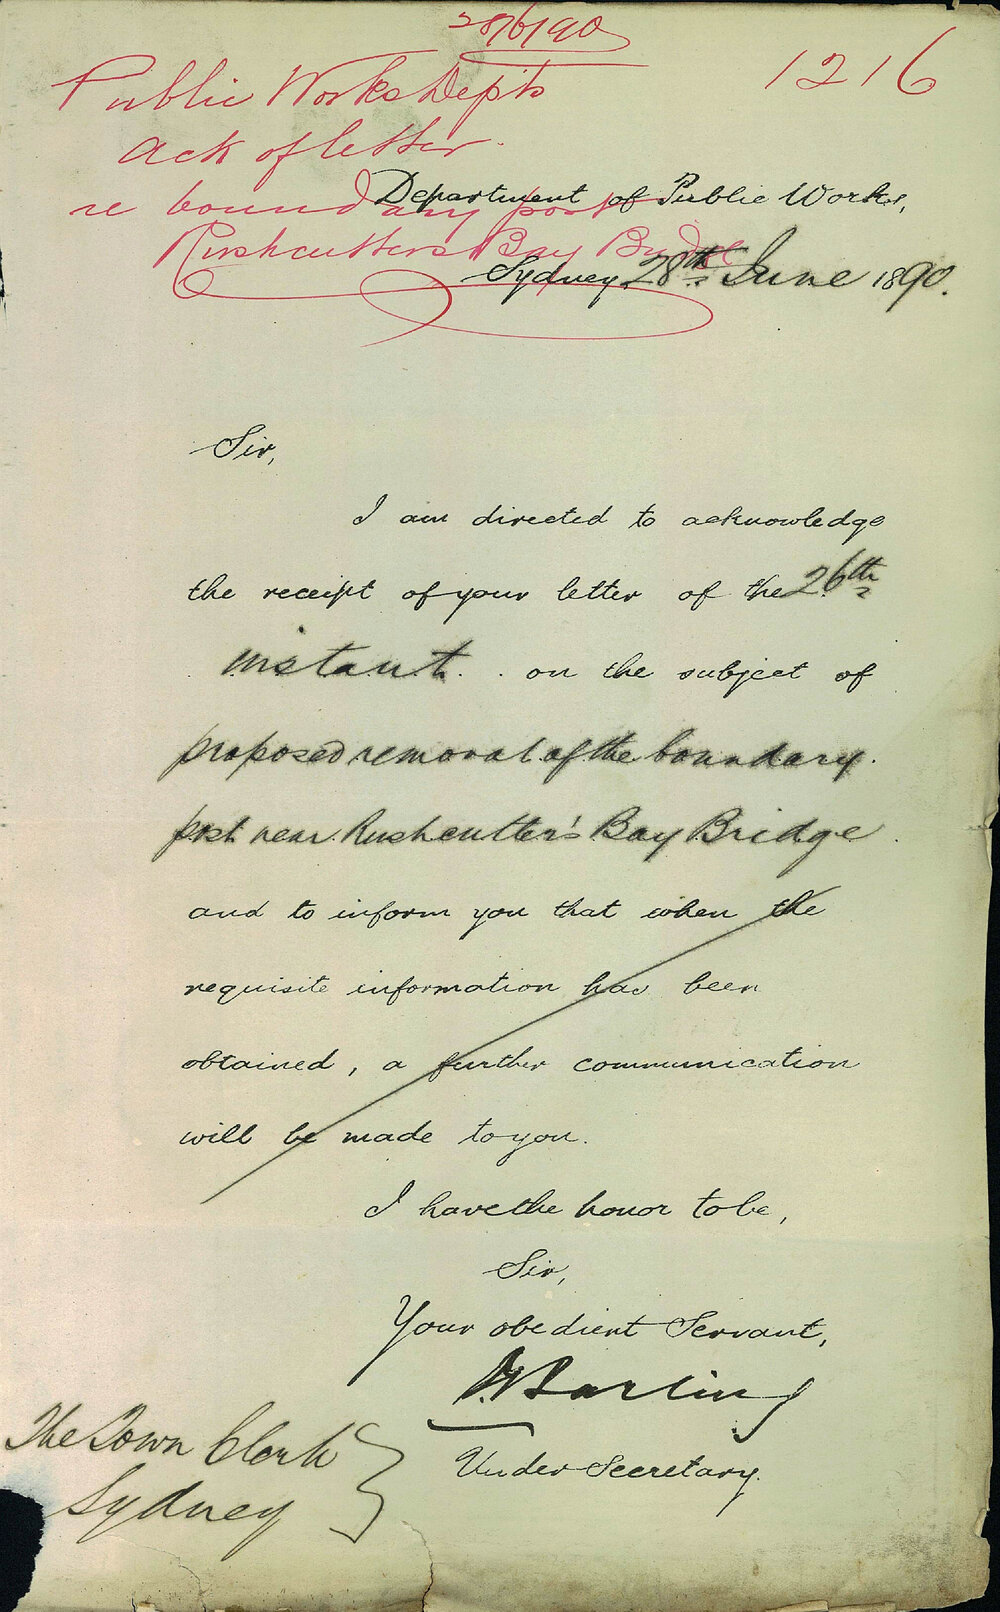 28/6/90
1216
Public Works Depts
Ack of letter
re boundary post
Rushcutters Bay Bridge
Department of Public Works,
Sydney, 28th June 1890.
Sir,
I am directed to acknowledge
the receipt of your letter of the 26th
instant. on the subject of
proposed removal of the boundary
post near Rushcutter's Bay Bridge
and to inform you that when the
requisite information has been
obtained, a further communication
will be made to you.
I have the honor to be,
Sir,
Your obedient Servant,
Barling
Under Secretary.
The Town Clerk
Sydney